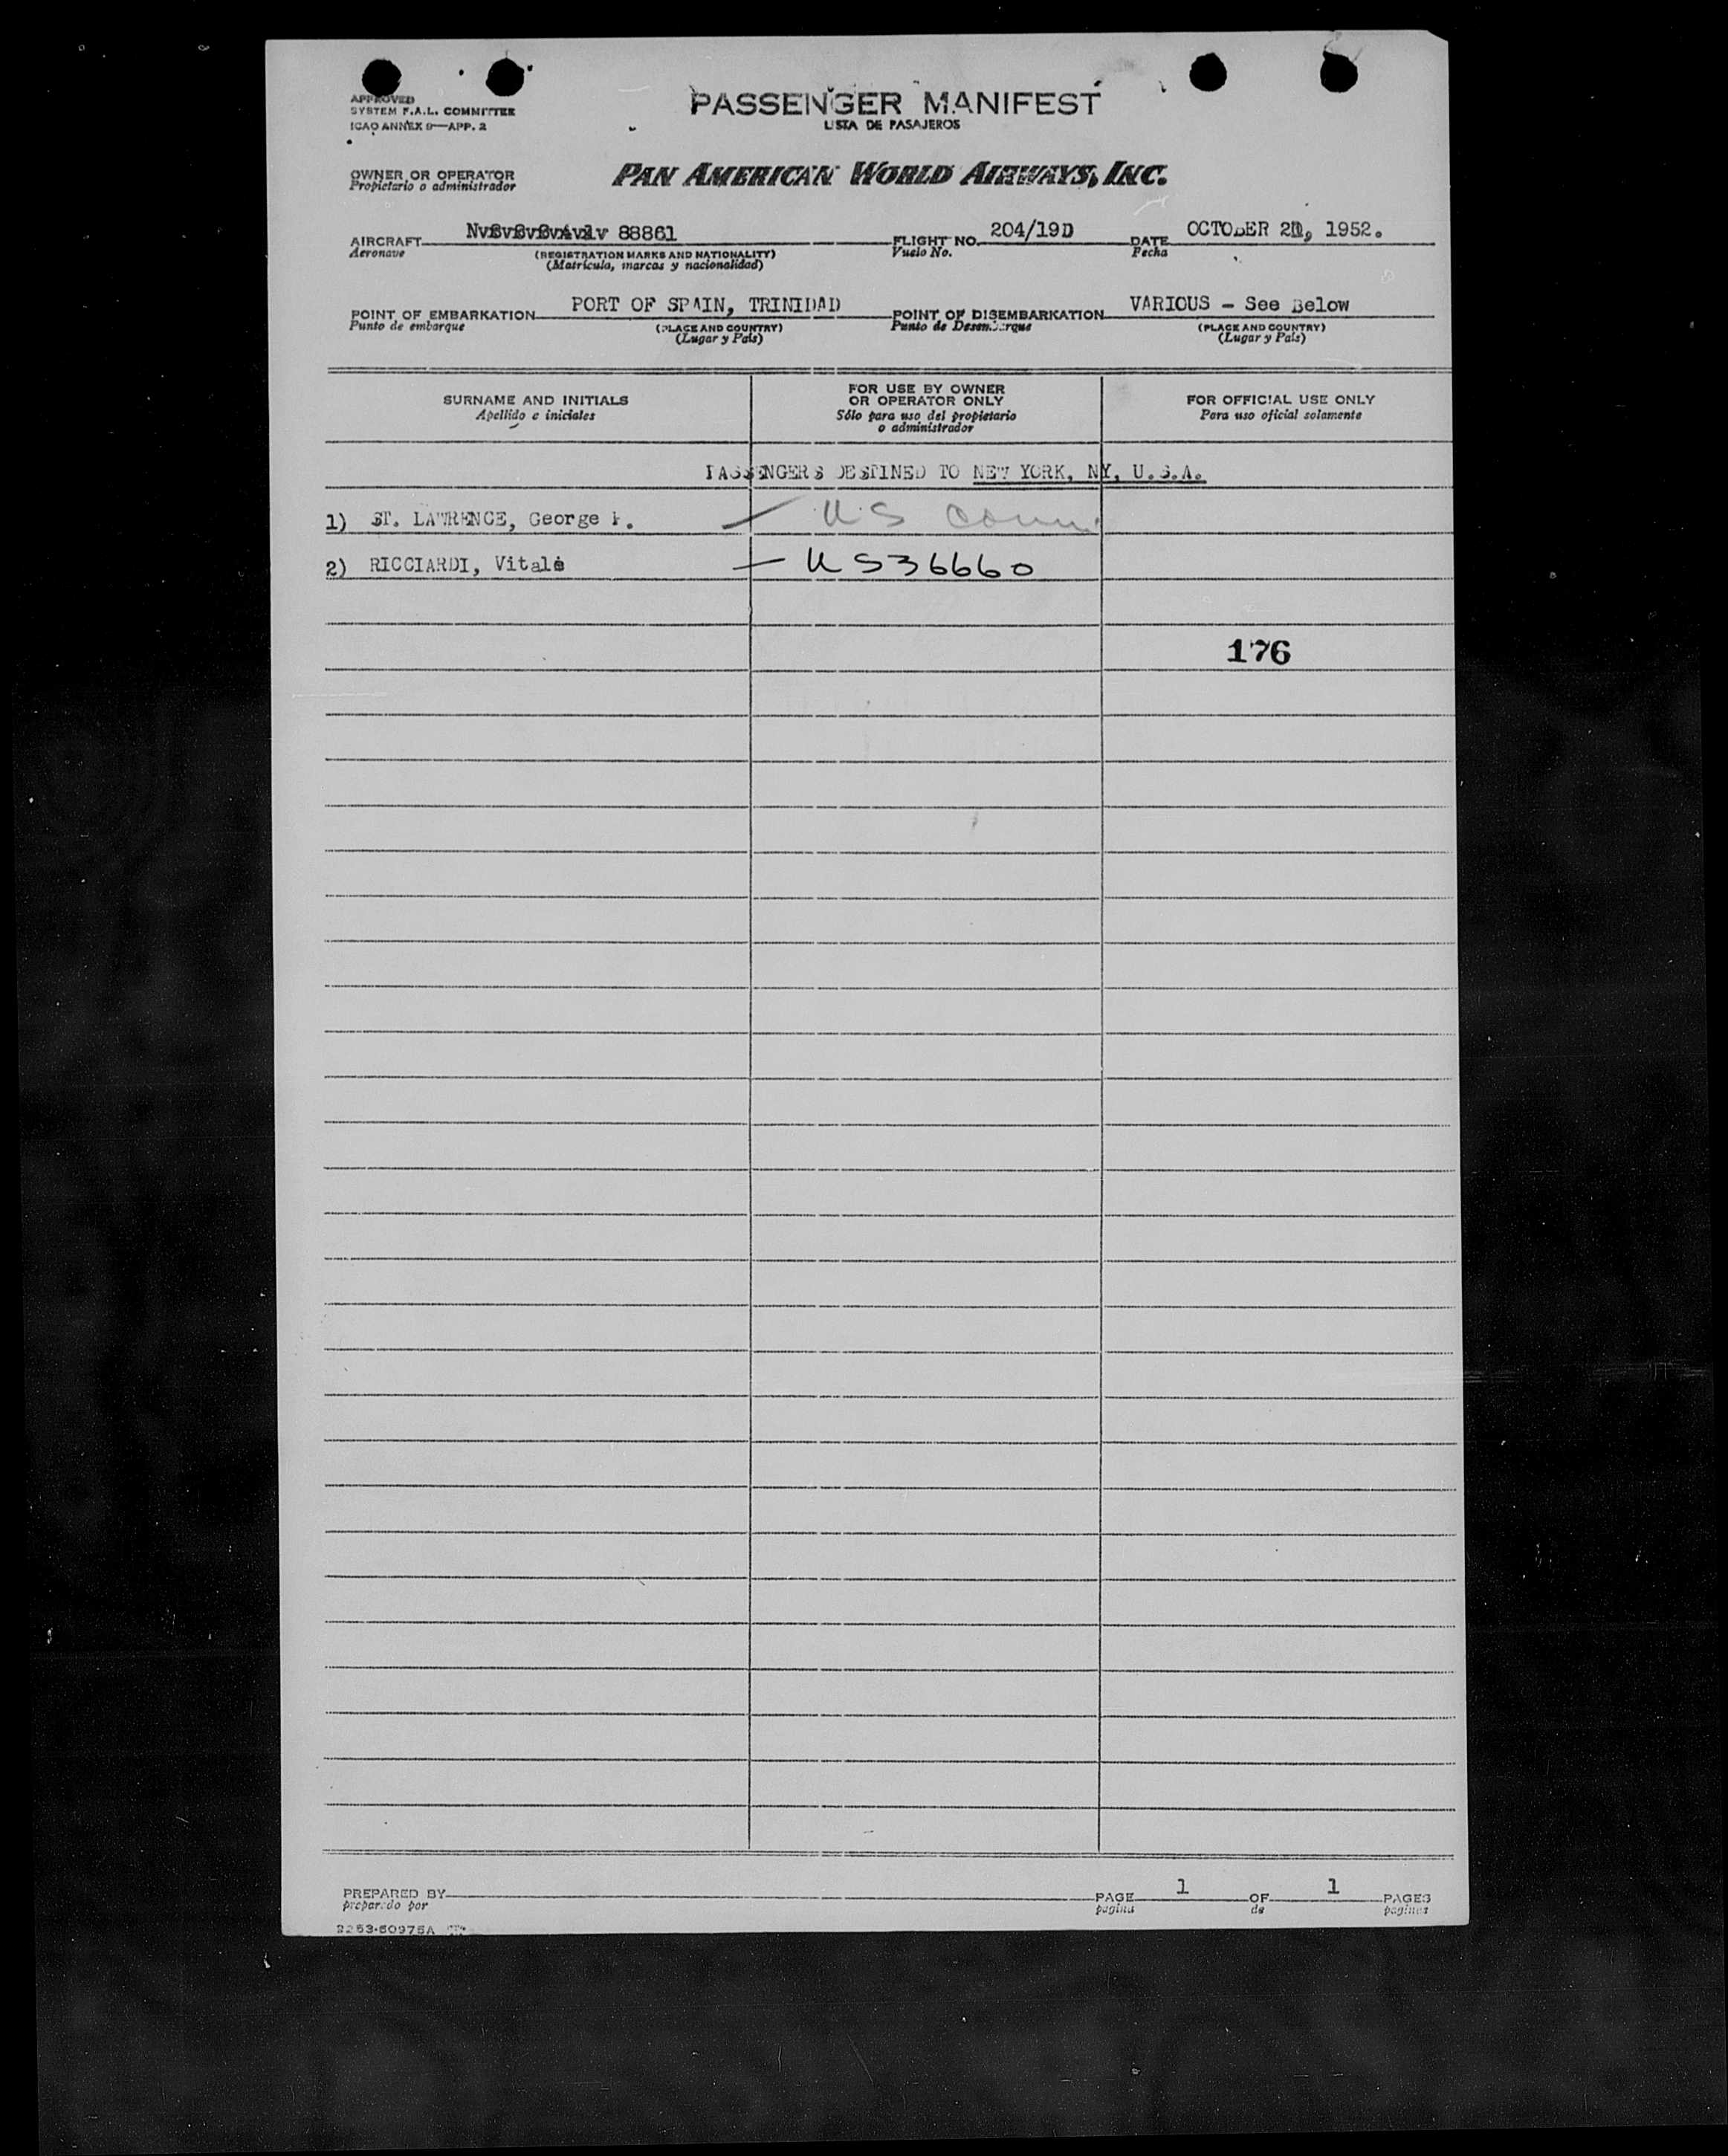 APPROVED
SYSTEM F.A.L. COMMITTEE
ICAO ANNEX 9—APP. 2
PASSENGER MANIFEST
LISTA DE PASAJEROS
OWNER OR OPERATOR
Propietario o administrador
PAN AMERICAN WORLD AIRWAYS, INC.
AIRCRAFT 88861
Aeronave
(REGISTRATION MARKS AND NATIONALITY)
(Matrícula, marcas y nacionalidad)
FLIGHT NO. 204/19D
Vuelo No.
DATE OCTOBER 1952.
Fecha
POINT OF EMBARKATION PORT OF SPAIN, TRINIDAD
Punto de embarque
(PLACE AND COUNTRY)
(Lugar y País)
POINT OF DISEMBARKATION VARIOUS - See Below
Punto de Desembarque
(PLACE AND COUNTRY)
(Lugar y País)
SURNAME AND INITIALS
Apellido e iniciales
FOR USE BY OWNER
OR OPERATOR ONLY
Sólo para uso del propietario
o administrador
FOR OFFICIAL USE ONLY
Para uso oficial solamente
PASSENGERS DESTINED TO NEW YORK, NY, U.S.A.
1) ST. LAWRENCE, George — US
2) RICCIARDI, Vitale — US36660
176
PREPARED BY
preparado por
PAGE 1 OF 1 PAGES
pagina de paginas